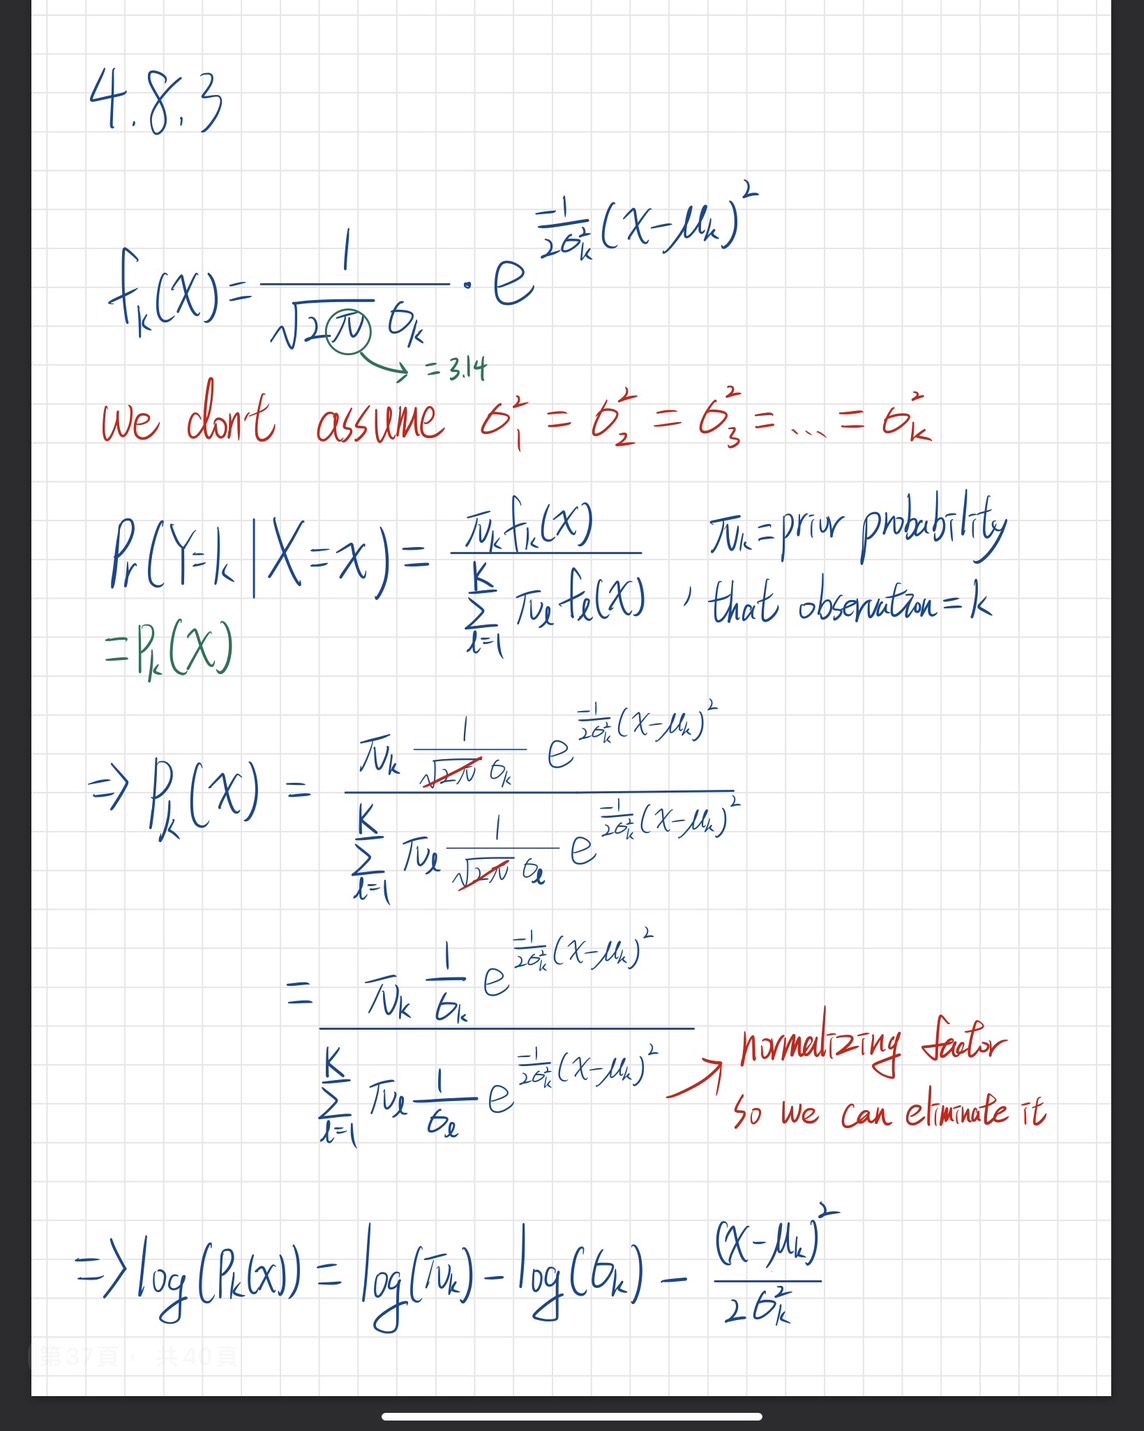 4.8.3
fₖ(x) = 1/(√(2π) σₖ) · e^(-1/(2σₖ²) (x-μₖ)²)
→ = 3.14
we don't assume σ₁² = σ₂² = σ₃² = ... = σₖ²
Pr(Y=k|X=x) = πₖfₖ(x) / Σ_{l=1}^{K} πₗfₗ(x) , πₖ = prior probability
that observation = k
= Pₖ(x)
=> Pₖ(x) = πₖ 1/(√(2π) σₖ) e^(-1/(2σₖ²) (x-μₖ)²) / Σ_{l=1}^{K} πₗ 1/(√(2π) σₗ) e^(-1/(2σₖ²) (x-μₖ)²)
= πₖ 1/σₖ e^(-1/(2σₖ²) (x-μₖ)²) / Σ_{l=1}^{K} πₗ 1/σₗ e^(-1/(2σₖ²) (x-μₖ)²)
→ normalizing factor
so we can eliminate it
=> log(Pₖ(x)) = log(πₖ) - log(σₖ) - (x-μₖ)²/(2σₖ²)
第37頁，共40頁